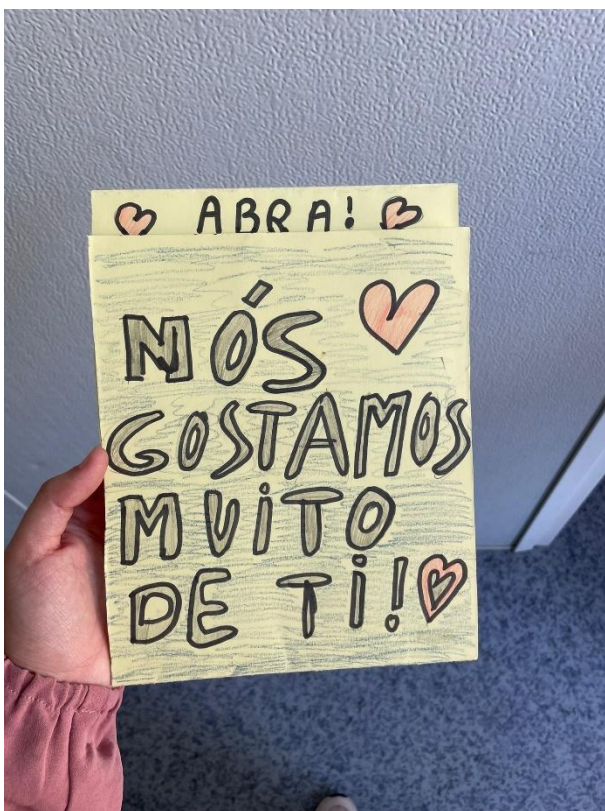 ABRA!
NÓS
GOSTAMOS
MUiTO
DE Ti!